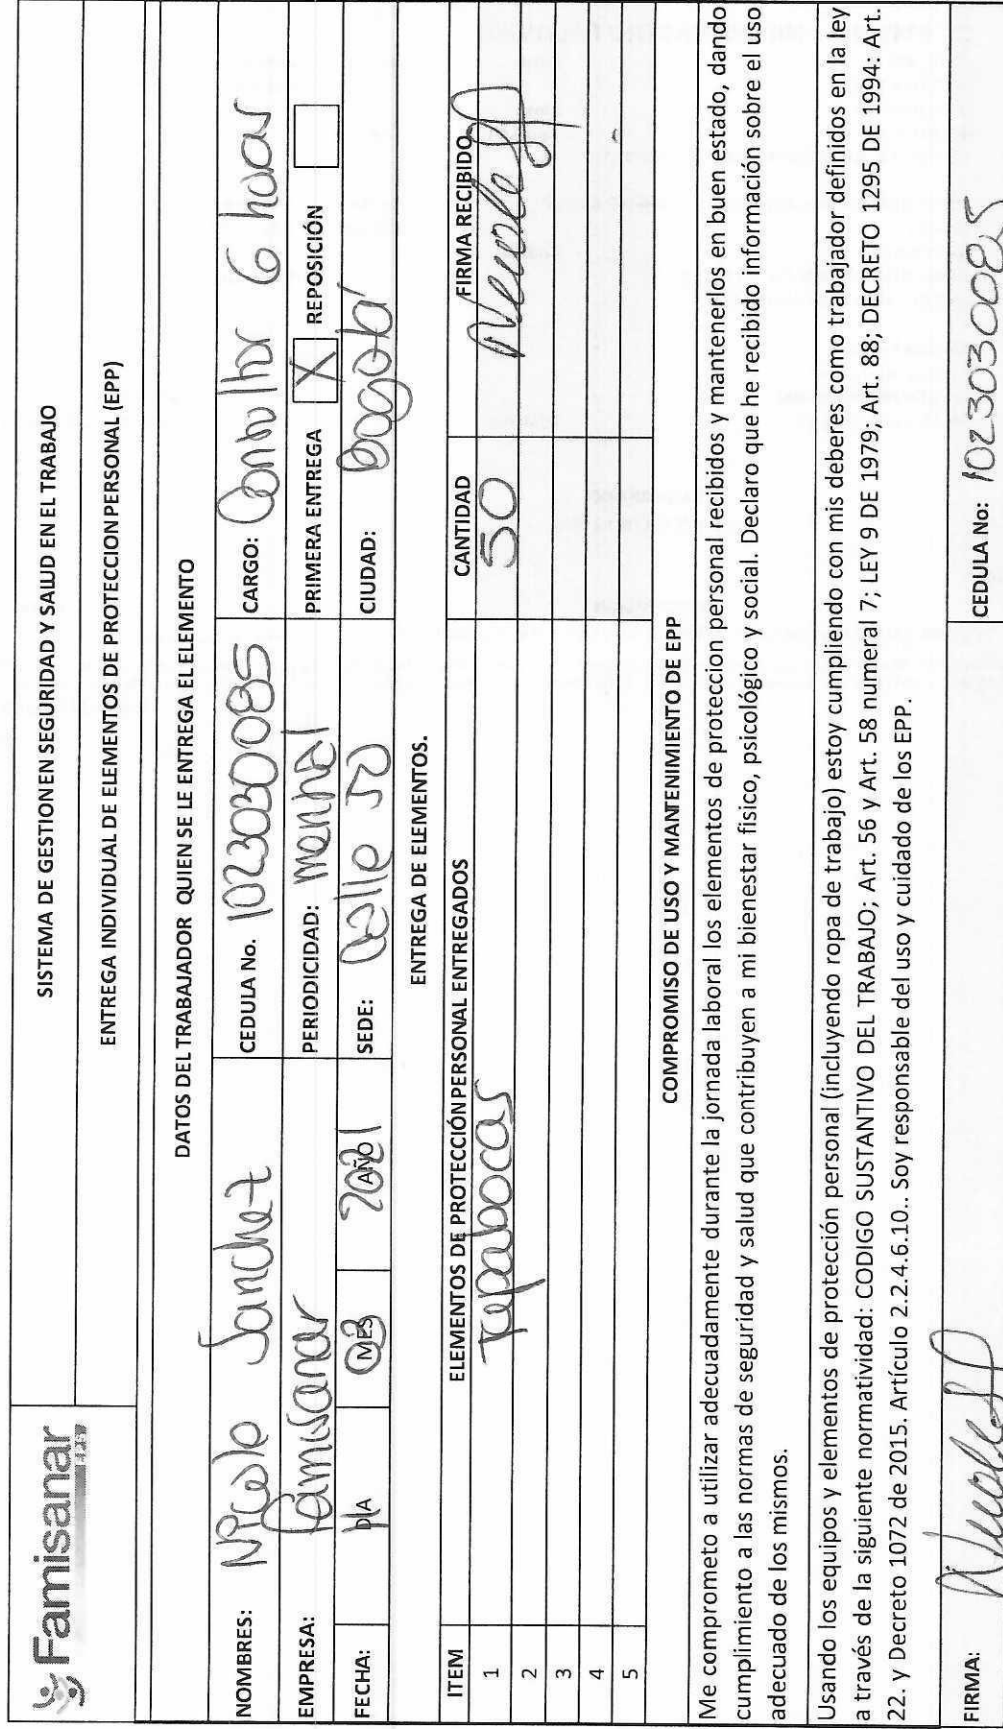 Famisanar
EPS
SISTEMA DE GESTION EN SEGURIDAD Y SALUD EN EL TRABAJO
ENTREGA INDIVIDUAL DE ELEMENTOS DE PROTECCION PERSONAL (EPP)
DATOS DEL TRABAJADOR QUIEN SE LE ENTREGA EL ELEMENTO
NOMBRES: Nicole Sanchez CEDULA No. 1023030085 CARGO: 6 horas
EMPRESA: Famisanar PERIODICIDAD: PRIMERA ENTREGA X REPOSICIÓN
FECHA: DIA 03 MES 2021 AÑO SEDE: Calle 50 CIUDAD: Bogotá
ENTREGA DE ELEMENTOS.
ITEM ELEMENTOS DE PROTECCIÓN PERSONAL ENTREGADOS CANTIDAD FIRMA RECIBIDO
1 Tapabocas 50 Nicole
2
3
4
5
COMPROMISO DE USO Y MANTENIMIENTO DE EPP
Me comprometo a utilizar adecuadamente durante la jornada laboral los elementos de proteccion personal recibidos y mantenerlos en buen estado, dando
cumplimiento a las normas de seguridad y salud que contribuyen a mi bienestar fisico, psicológico y social. Declaro que he recibido información sobre el uso
adecuado de los mismos.
Usando los equipos y elementos de protección personal (incluyendo ropa de trabajo) estoy cumpliendo con mis deberes como trabajador definidos en la ley
a través de la siguiente normatividad: CODIGO SUSTANTIVO DEL TRABAJO; Art. 56 y Art. 58 numeral 7; LEY 9 DE 1979; Art. 88; DECRETO 1295 DE 1994: Art.
22. y Decreto 1072 de 2015. Artículo 2.2.4.6.10.. Soy responsable del uso y cuidado de los EPP.
FIRMA: Nicole CEDULA No: 1023030085